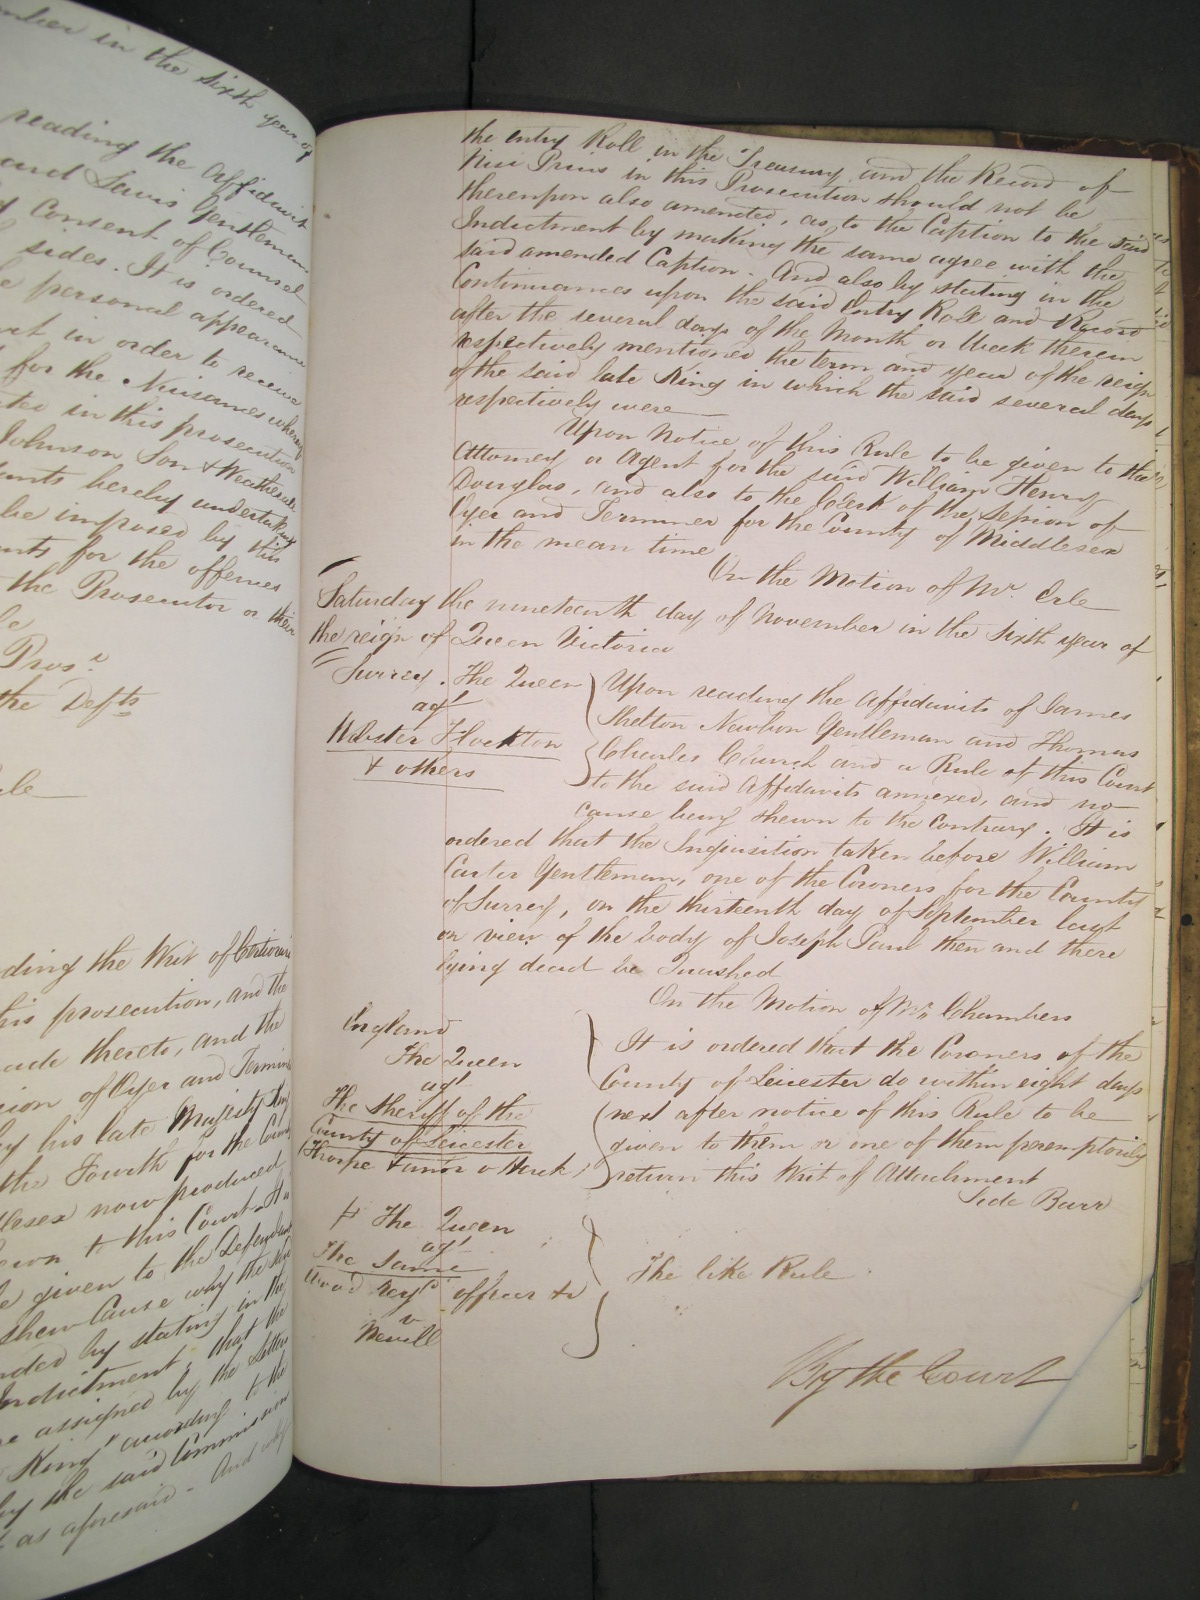 mber in the sixth year of
reading the Affidavit
and Lewis Gentlemen
consent of Counsel
sides. It is ordered
personal appearance
in order to receive
for the Nuisances whereof
in this prosecution
Johnson Son & Weatherall
hereby undertaking
be imposed by this
for the offences
the Prosecutor or their
Prosr
the Defts
ding the Writ of Certiorari
his prosecution, and the
ade thereto, and the
sion of Oyer and Termin
by his late Majesty King
the Fourth for the County
lesex now produced
to this Court It is
given to the Defendant
shew Cause why the
nded by stating in the
Indictment, that the
assigned by the Letters
King" according to the
by the said Commission
as aforesaid - And why
the entry Roll in the Treasury and the Record of
Nisi Prius in this Prosecution should not be
thereupon also amended, as to the Caption to the said
Indictment by making the same agree with the
said amended Caption - And also by stating in the
Continuances upon the said Entry Roll and Record
after the several days of the Month or Week therein
respectively mentioned the term and year of the reign
of the said late King in which the said several days
respectively were
Upon Notice of this Rule to be given to the
Attorney or Agent for the said William Henry
Douglas, and also to the Clerk of the Session of
Oyer and Terminer for the County of Middlesex
in the mean time
On the Motion of Mr. Erle
Saturday the nineteenth day of November in the Sixth year of
the reign of Queen Victoria
Surrey. The Queen
agt
Webster Flockton
& others
Upon reading the Affidavits of James
Shelton Newbon Gentleman and Thomas
Charles Church and a Rule of this Court
to the said Affidavits annexed, and no
cause being shewn to the contrary. It is
ordered that the Inquisition taken before William
Carter Gentleman, one of the Coroners for the County
of Surrey, on the thirteenth day of September last
on view of the body of Joseph Paul then and there
lying dead be Quashed
On the Motion of Mr. Chambers
England
The Queen
agt
The Sheriff of the
County of Leicester
Thorpe & anor v
It is ordered that the Coroners of the
County of Leicester do within eight days
next after notice of this Rule to be
given to them or one of them peremptorily
return this Writ of Attachment
Side Barr
The Queen
agt
The Same
officer &c
v
The like Rule
By the Court